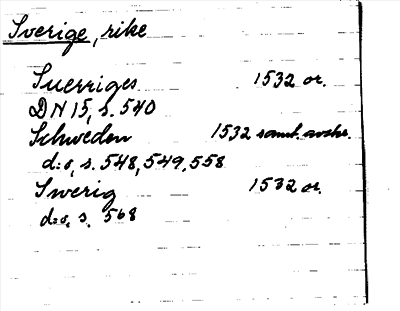 Sverige, rike
Suerriges 1532 or.
DN 15, s. 540
Schweden 1532 samt. avskr.
d:o, s. 548, 549, 558
Swerig 1532 or.
d:o, s. 568